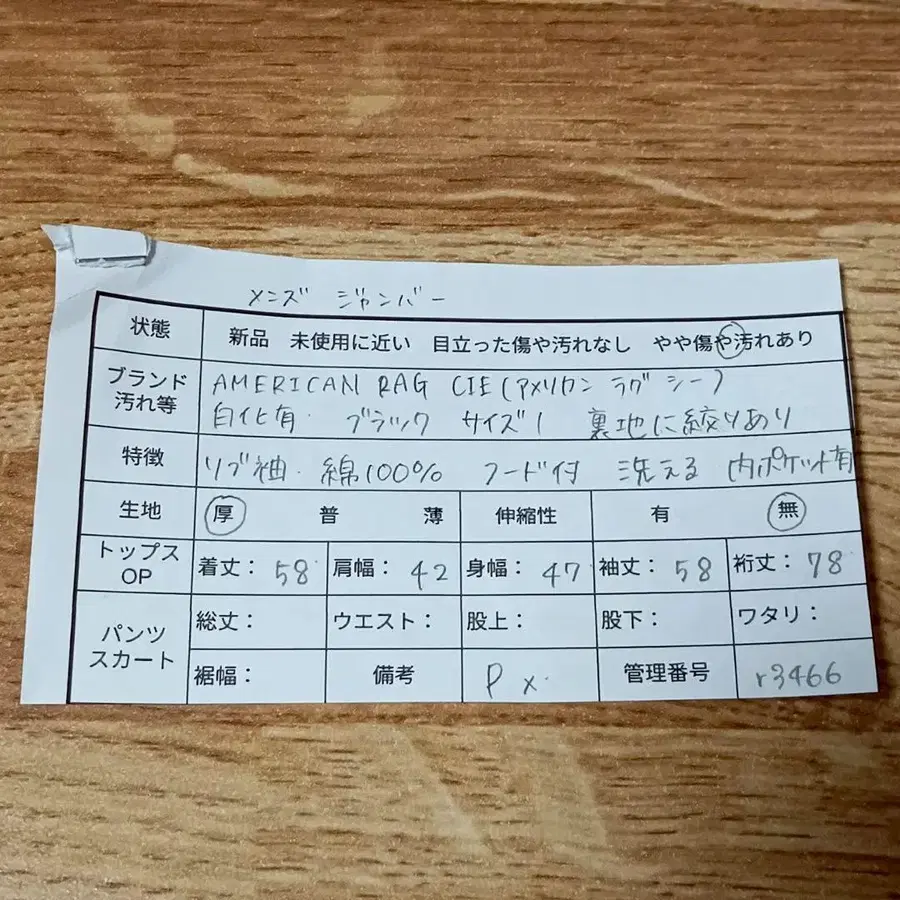 メンズ ジャンバー
状態 新品 未使用に近い 目立った傷や汚れなし やや傷や汚れあり
ブランド 汚れ等 AMERICAN RAG CIE(アメリカン ラグ シー)
白化有 ブラック サイズ1 裏地に絞りあり
特徴 リブ袖 綿100% フード付 洗える 内ポケット有
生地 厚 普 薄 伸縮性 有 無
トップス OP 着丈: 58 肩幅: 42 身幅: 47 袖丈: 58 裄丈: 78
パンツ スカート 総丈: ウエスト: 股上: 股下: ワタリ:
裾幅: 備考 P x 管理番号 r3466